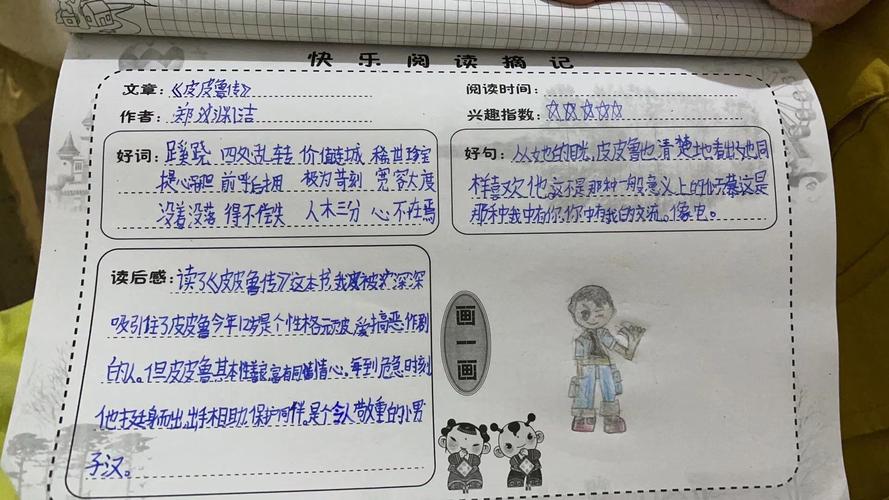 快乐阅读摘记
文章：《皮皮鲁传》
阅读时间：
作者：郑渊洁
兴趣指数：☆☆☆☆☆
好词：蹊跷 四处乱转 价值连城 稀世珍宝
提心吊胆 前呼后拥 极为苛刻 宽容大度
没着没落 得不偿失 入木三分 心不在焉
好句：从她的目光，皮皮鲁也清楚地看出她也同
样喜欢他，这不是那种一般意义上的仰慕这是
那种我中有你，你中有我的交流。像电。
读后感：读了《皮皮鲁传》这本书，我被深深
吸引住了皮皮鲁今年12岁是个性格顽皮，爱搞恶作剧
的人。但皮皮鲁其本性善良富有同情心，每到危急时刻
他挺身而出，出手相助，保护同伴。是个令人敬重的小男
子汉。
画一画